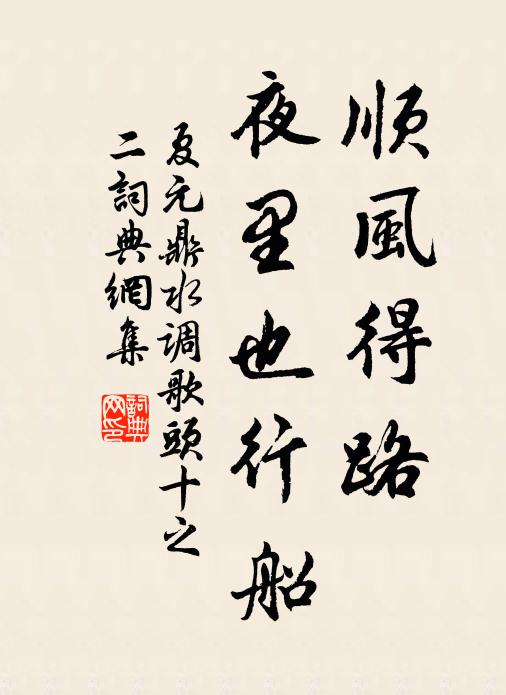 順風得路
夜里也行船
夏元鼎水调歌頭十之
二詞典網集
詞典網印